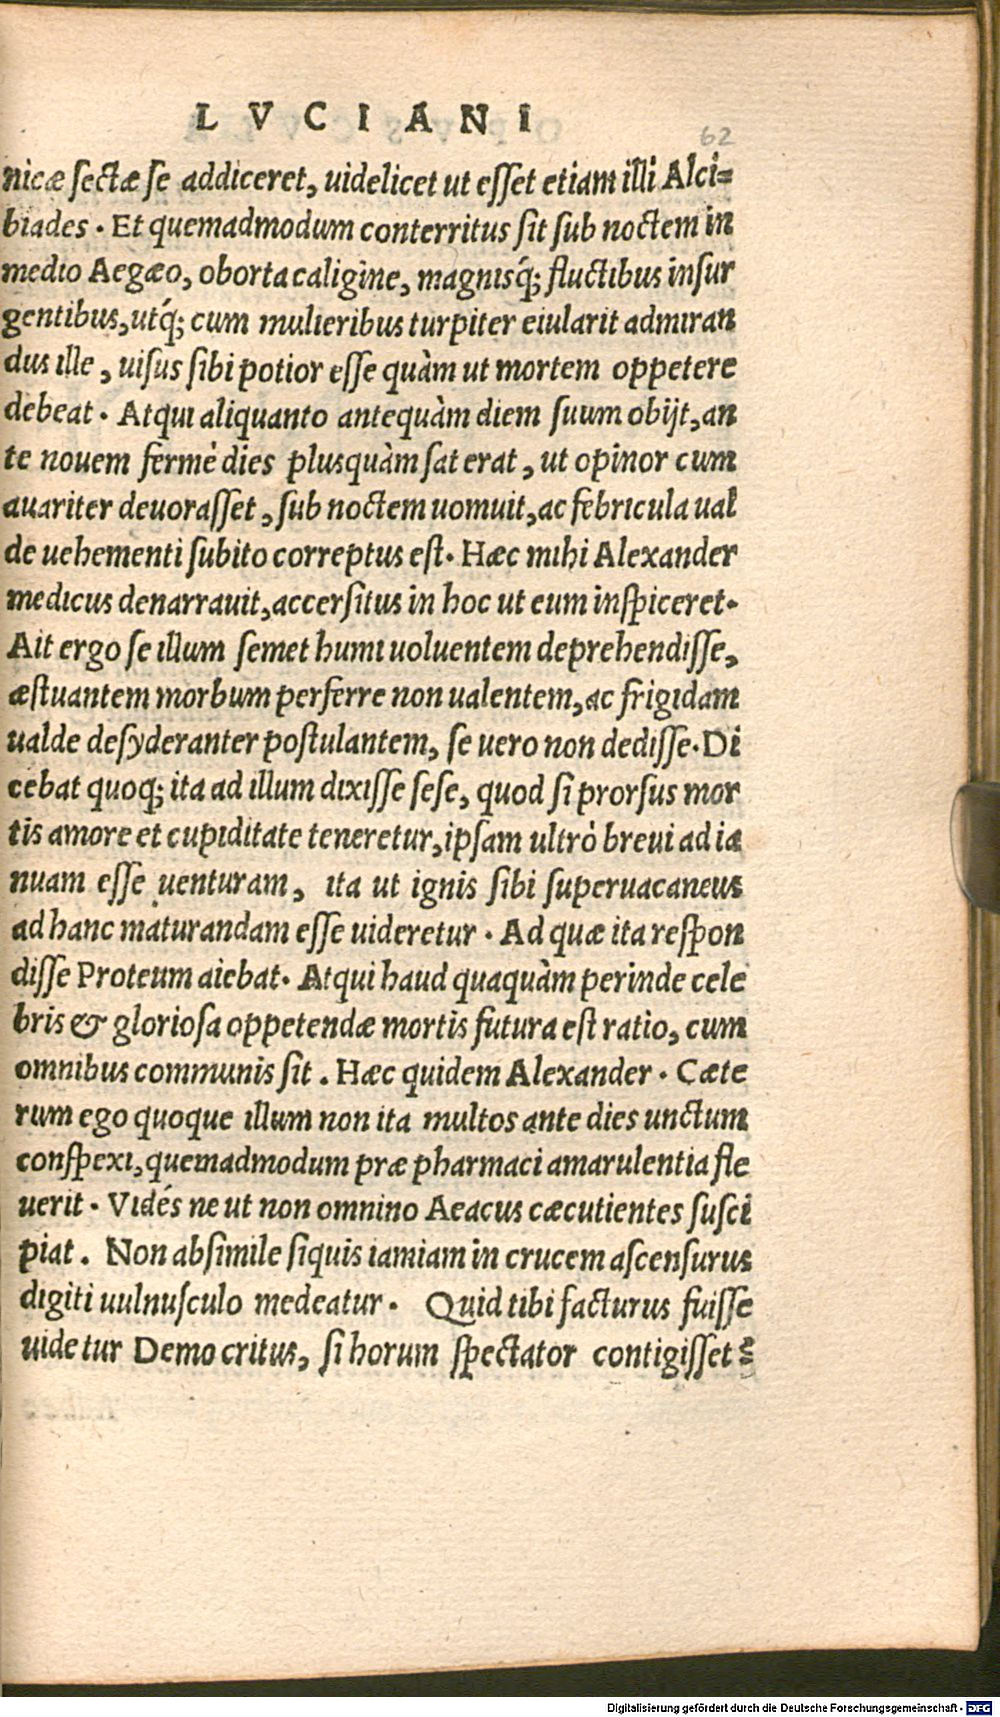 LVCIANI
62
nicæ sectæ se addiceret, uidelicet ut esset etiam illi Alci=
biades. Et quemadmodum conterritus sit sub noctem in
medio Aegæo, oborta caligine, magnisq́; fluctibus insur
gentibus, utq́; cum mulieribus turpiter eiularit admiran
dus ille, uisus sibi potior esse quàm ut mortem oppetere
debeat. Atqui aliquanto antequàm diem suum obijt, an
te nouem fermè dies plusquàm sat erat, ut opinor cum
auariter deuorasset, sub noctem uomuit, ac febricula ual
de uehementi subito correptus est. Hæc mihi Alexander
medicus denarrauit, accersitus in hoc ut eum inspiceret.
Ait ergo se illum semet humi uoluentem deprehendisse,
æstuantem morbum perferre non ualentem, ac frigidam
ualde desyderanter postulantem, se uero non dedisse. Di
cebat quoq; ita ad illum dixisse sese, quod si prorsus mor
tis amore et cupiditate teneretur, ipsam ultrò breui ad ia
nuam esse uenturam, ita ut ignis sibi superuacaneus
ad hanc maturandam esse uideretur. Ad quæ ita respon
disse Proteum aiebat. Atqui haud quaquàm perinde cele
bris & gloriosa oppetendæ mortis futura est ratio, cum
omnibus communis sit. Hæc quidem Alexander. Cæte
rum ego quoque illum non ita multos ante dies unctum
conspexi, quemadmodum præ pharmaci amarulentia fle
uerit. Vidés ne ut non omnino Aeacus cæcutientes susci
piat. Non absimile siquis iamiam in crucem ascensurus
digiti uulnusculo medeatur. Quid tibi facturus fuisse
uidetur Democritus, si horum spectator contigisset?
Digitalisierung gefördert durch die Deutsche Forschungsgemeinschaft - DFG